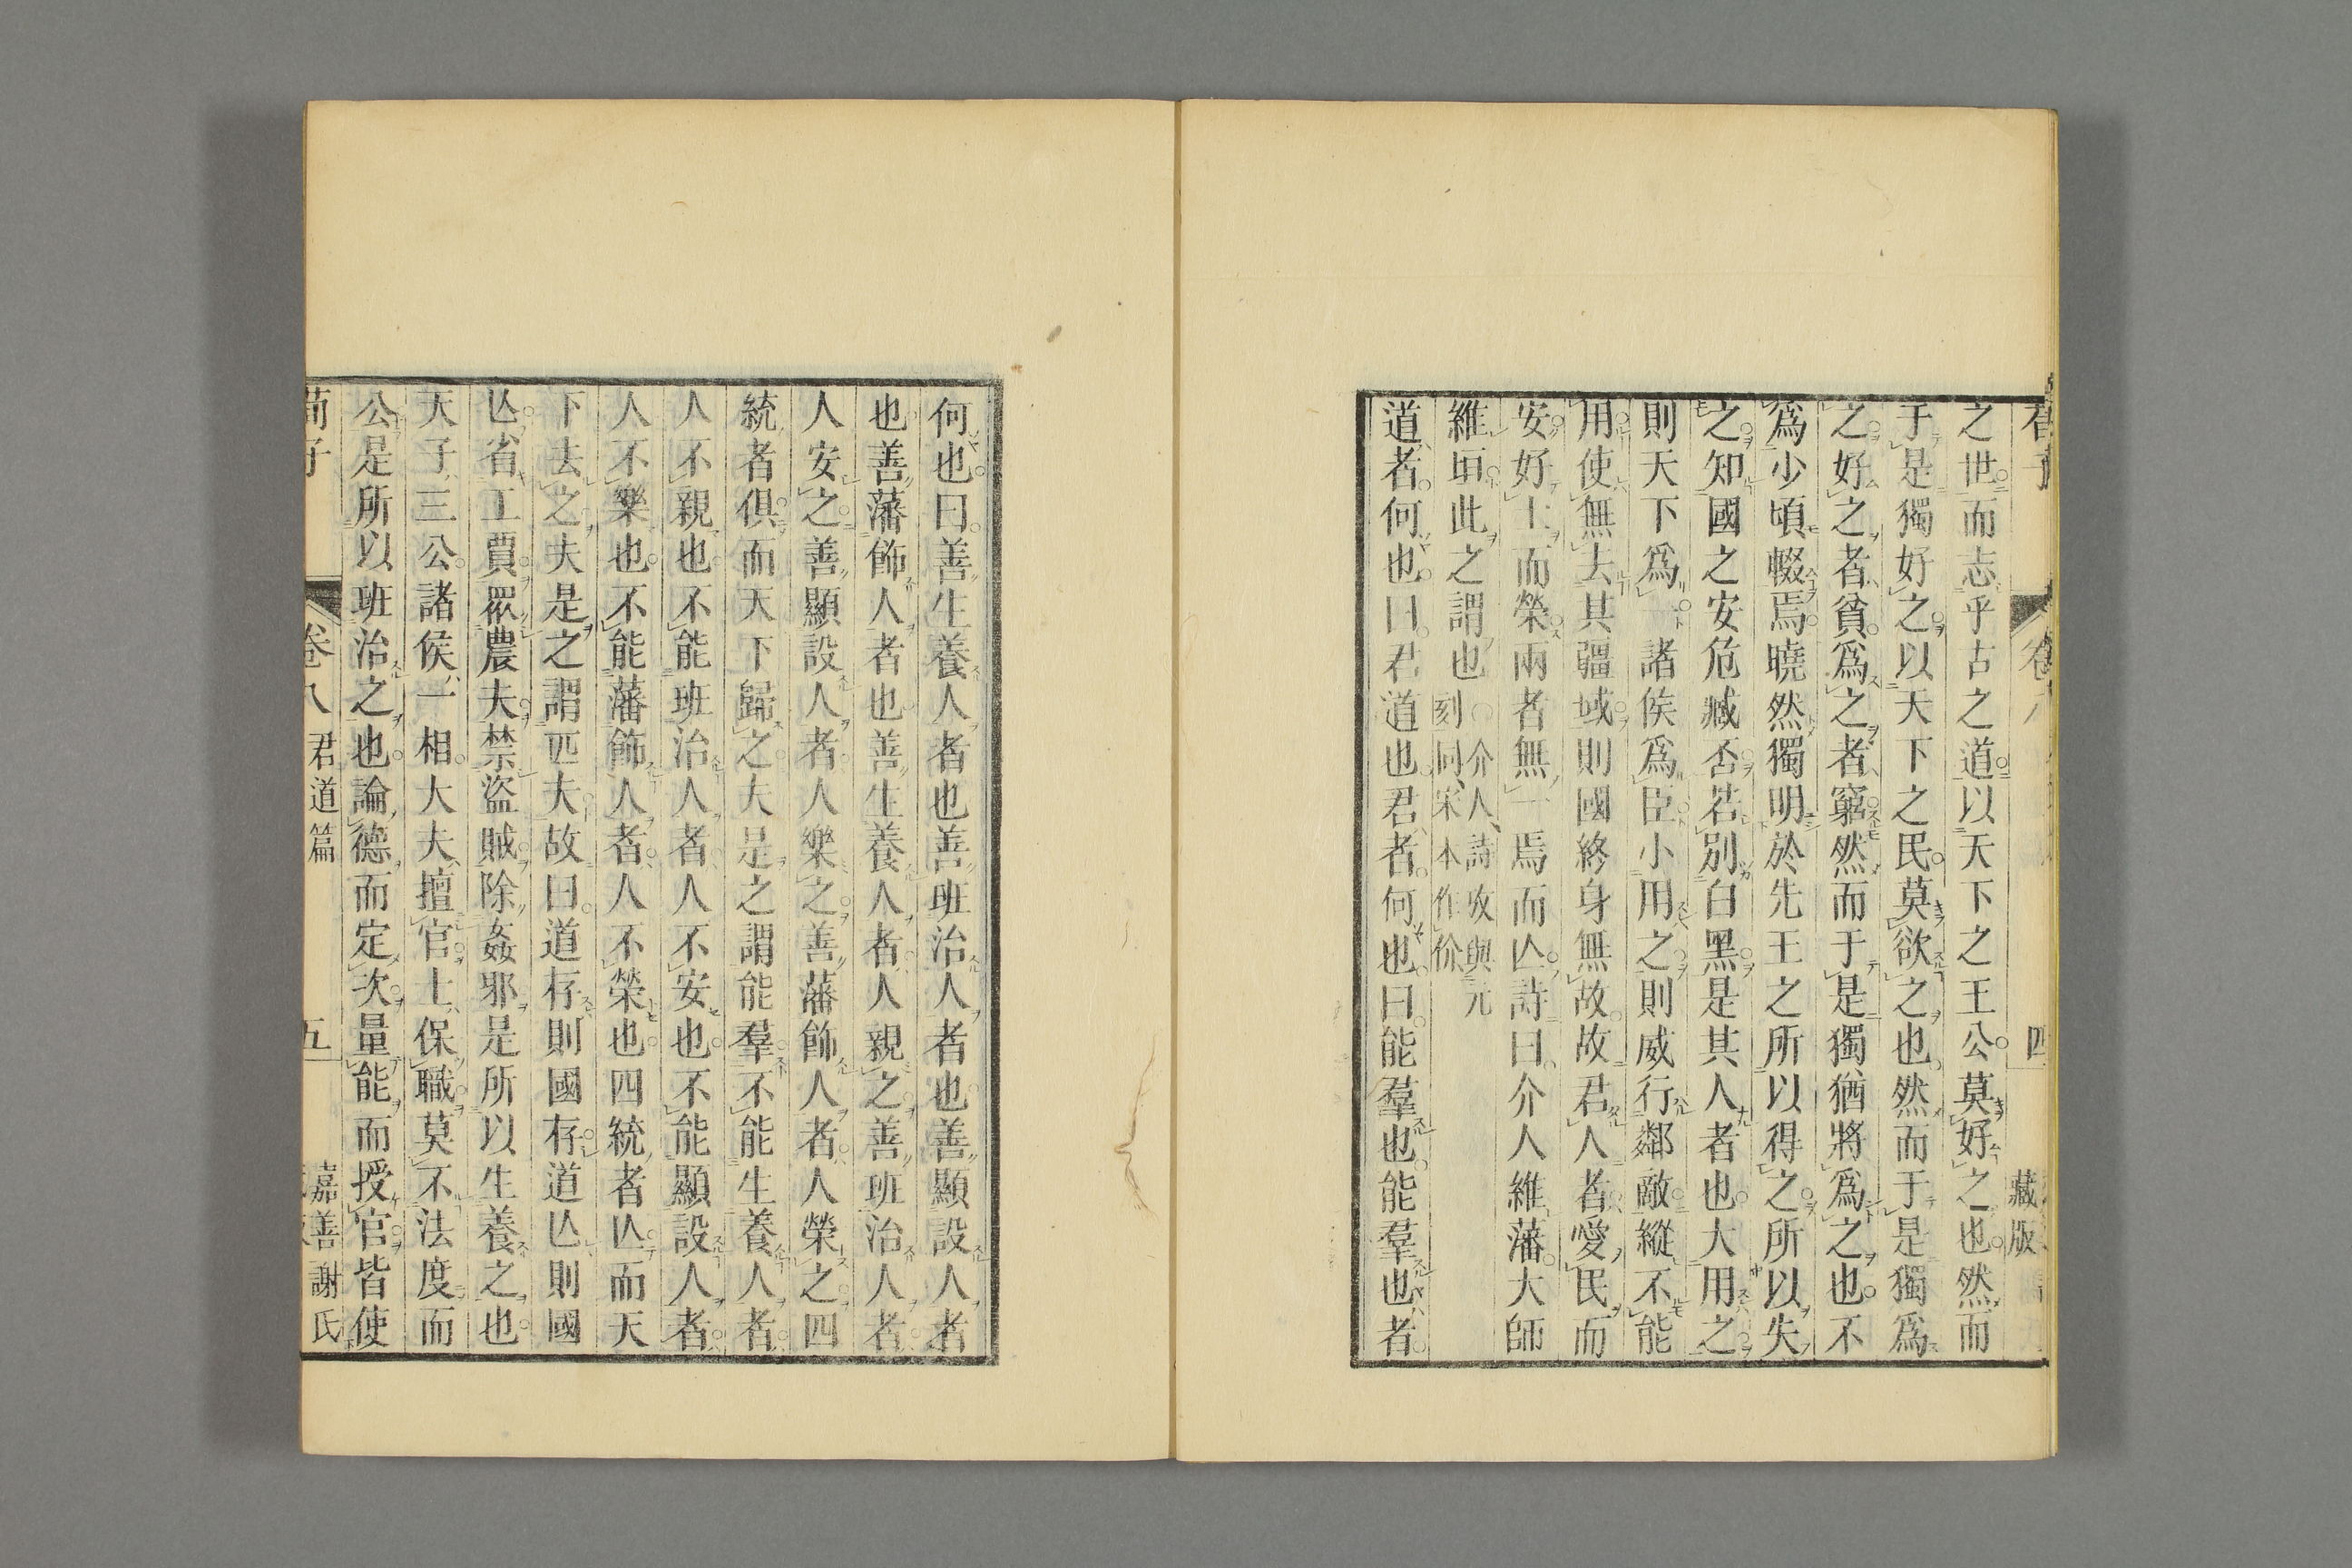 荀子
卷八
四
藏版
之世而志乎古之道以天下之王公莫好之也然而
于是獨好之以天下之民莫欲之也然而于是獨爲
之好之者貧爲之者窮然而于是獨猶將爲之也不
爲少頃輟焉曉然獨明於先王之所以得之所以失
之知國之安危臧否若別白黑是其人者也大用之
則天下爲一諸侯爲臣小用之則威行鄰敵縱不能
用使無去其疆域則國終身無故故君人者愛民而
安好士而榮兩者無一焉而亾詩曰介人維藩大師
維垣此之謂也○介人詩攷與元
刻同宋本作价
道者何也曰君道也君者何也曰能羣也能羣也者
何也曰善生養人者也善班治人者也善顯設人者
也善藩飾人者也善生養人者人親之善班治人者
人安之善顯設人者人樂之善藩飾人者人榮之四
統者俱而天下歸之夫是之謂能羣不能生養人者
人不親也不能班治人者人不安也不能顯設人者
人不樂也不能藩飾人者人不榮也四統者亾而天
下去之夫是之謂匹夫故曰道存則國存道亾則國
亾省工賈眾農夫禁盜賊除姦邪是所以生養之也
天子三公諸侯一相大夫擅官士保職莫不法度而
公是所以班治之也論德而定次量能而授官皆使
荀子
卷八
君道篇
五
嘉善謝氏